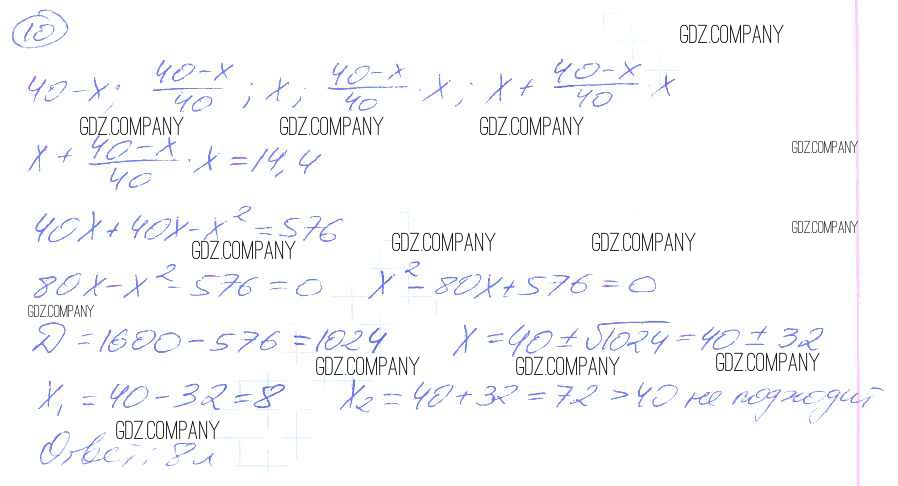 10
GDZ.COMPANY
40-x; (40-x)/40; x; (40-x)/40 · x; x + (40-x)/40 · x
GDZ.COMPANY GDZ.COMPANY GDZ.COMPANY
GDZ.COMPANY
x + (40-x)/40 · x = 14,4
40x+40x-x²=576
GDZ.COMPANY GDZ.COMPANY GDZ.COMPANY GDZ.COMPANY
80x-x²-576=0 x²-80x+576=0
GDZ.COMPANY
D=1600-576=1024 x=40±√1024=40±32
GDZ.COMPANY GDZ.COMPANY GDZ.COMPANY
x₁=40-32=8 x₂=40+32=72>40 не подходит
GDZ.COMPANY
Ответ: 8 л